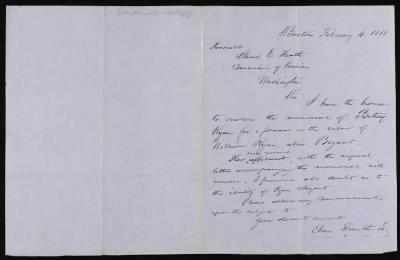 Boston February 4 1851
Honorable
James E. Heath
Commissioner of Pensions
Washington
Sir
I have the honor
to enclose the memorial of Betsey
Ryan for a pension as the widow of
William Ryan alias Bryant.
Her with the original
letter accompanying the memorial will
remove, I presume all doubt as to
the identity of Ryan & Bryant.
Please address any communication
upon the subject to
Your obedient servant